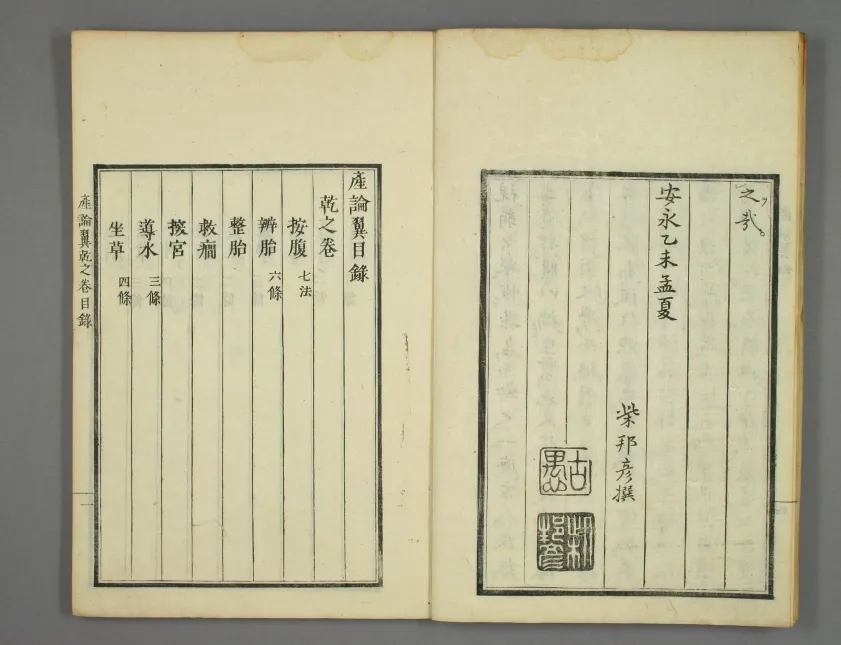 之哉
安永乙未孟夏
柴邦彥撰
柴邦彥
產論翼目錄
乾之卷
按腹 七法
辨胎 六條
整胎
救癇
宮
導水 三條
坐草 四條
產論翼乾之卷目錄
一